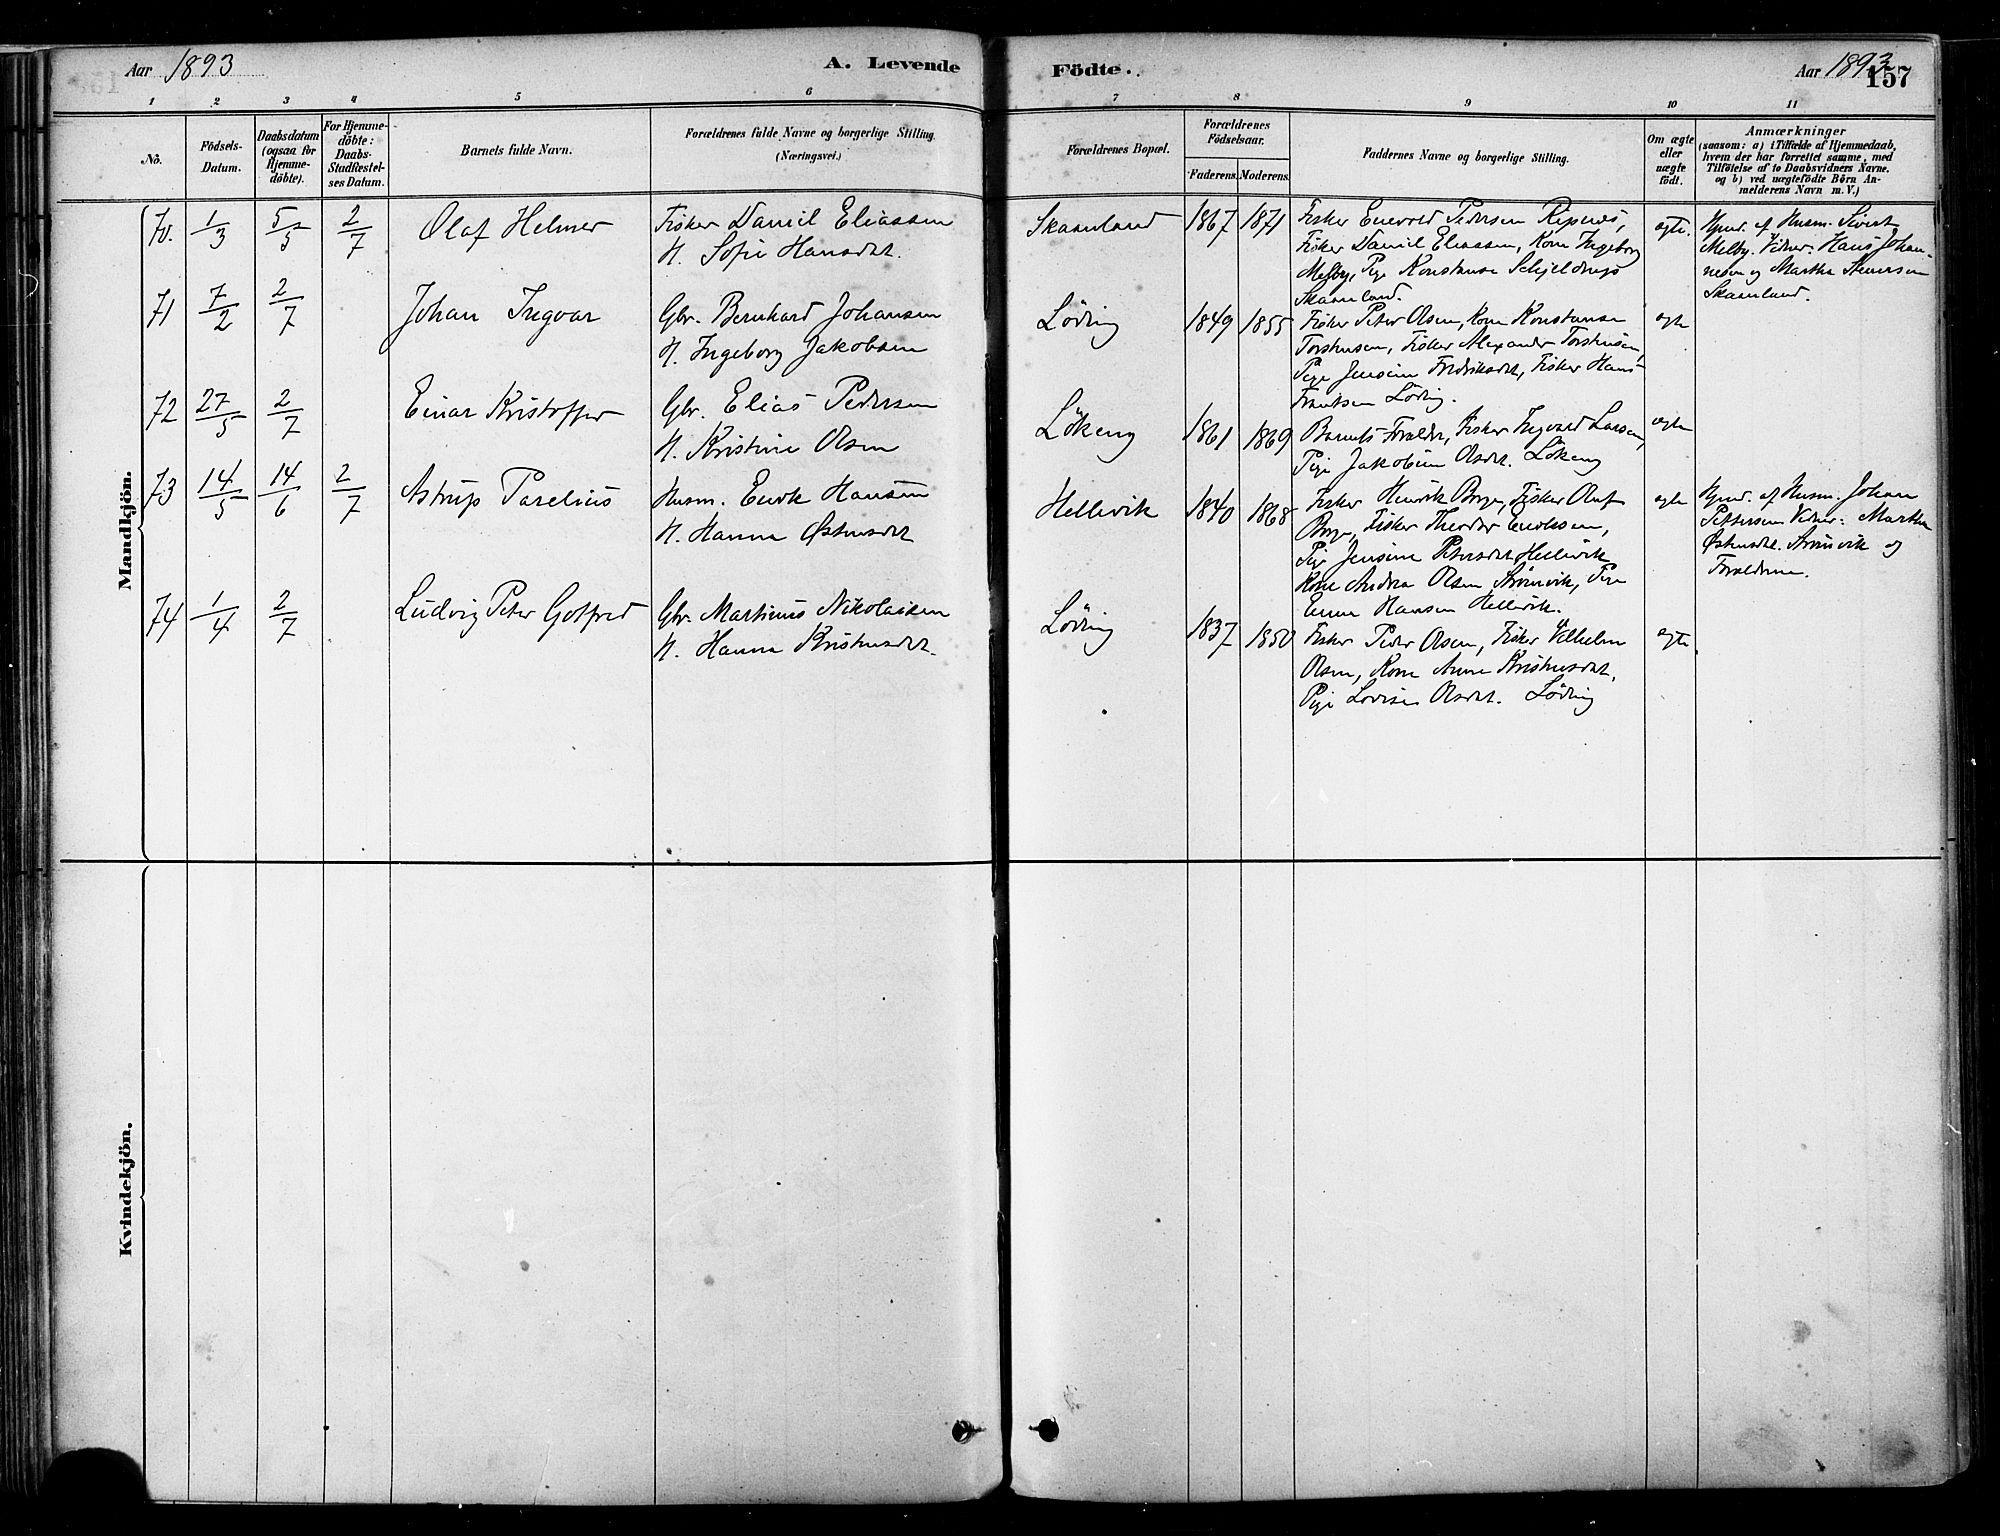 Aar 1893
A. Levende
Födte.
Aar 1893
157
1 2 3 4 5 6 7 8 9 10 11
No.
Födsels-
Datum.
Daabsdatum
(ogsaa for
Hjemme-
döbte).
For Hjemme-
döbte:
Daabs-
Stadfæstel-
ses Datum.
Barnets fulde Navn.
Forældrenes fulde Navne og borgerlige Stilling.
(Næringsvei.)
Forældrenes Bopæl.
Forældrenes
Födselsaar.
Faderens. Moderens.
Faddernes Navne og borgerlige Stilling.
Om ægte
eller
uægte
födt.
Anmærkninger
(saasom: a) i Tilfælde af Hjemmedaab,
hvem der har forrettet samme, med
Tilföielse af to Daabsvidners Navne,
og b) ved uægtefödte Börn An-
melderens Navn m. V.)
Mandkjön.
70. 1/3 5/5 2/7 Olaf Helmer
Fisker Daniel Eliassen
H. Sofie Hansdat.
Skaanland 1867 1871
Fisker Enevold Pedersen Repnes,
Fisker Daniel Eliassen, Kone Ingeborg
Melby, Pige Konstanse Schjeldrups
Skaanland.
ægte.
Hjmd. af Husm. Sivert
Melby. Vidner: Hans Johan-
nesen og Martha
Skaanland.
71 7/2 2/7 Johan Ingvar
Gbr. Bernhard Johansen
H. Ingeborg Jakobsen
Löding 1849 1855
Fisker Peter Olsen, Kone Konstanse
Torstensen, Fisker Alexander Torstensen,
Pige Jensine Fredriksdat, Fisker Hans
Frantsen Löding.
ægte
72 27/5 2/7 Einar Kristoffer
Gbr. Elias Pedersen
H. Kristine Olsen
Lökeng 1861 1869
Barnets Forældre, Fisker Ingvard Larsen,
Pige Jakobine Olsdat. Lökeng
ægte
73 14/5 14/6 2/7 Astrup Parelius
Husm. Enok Hansen
H. Hanna Østensdat
Hellevik 1840 1868
Fisker Henrik Borge, Fisker Oluf
Borge, Fisker Theodor Enoksen,
Pige Jensine Petersdat Hellevik
Kone Andrea Olsen Strømvik, Pige
Hansen Hellevik.
ægte
Hjmd. af Husm. Johan
Pettersen Vidner: Martha
Østensdat. Strømvik og
Forældrene.
74 1/4 2/7 Ludvig Peter Gotfred
Gbr. Martinus Nikolaisen
H. Hanna Kristensdat.
Löding 1837 1850
Fisker Peder Olsen, Fisker Vilhelm
Olsen, Kone Anne Kristensdat,
Pige Lovise Olsdat. Löding
ægte.
Kvindekjön.